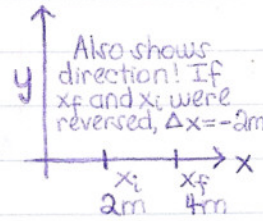 Also shows
y direction! If
xf and xi were
reversed, Δx=-2m
x
xi xf
2m 4m